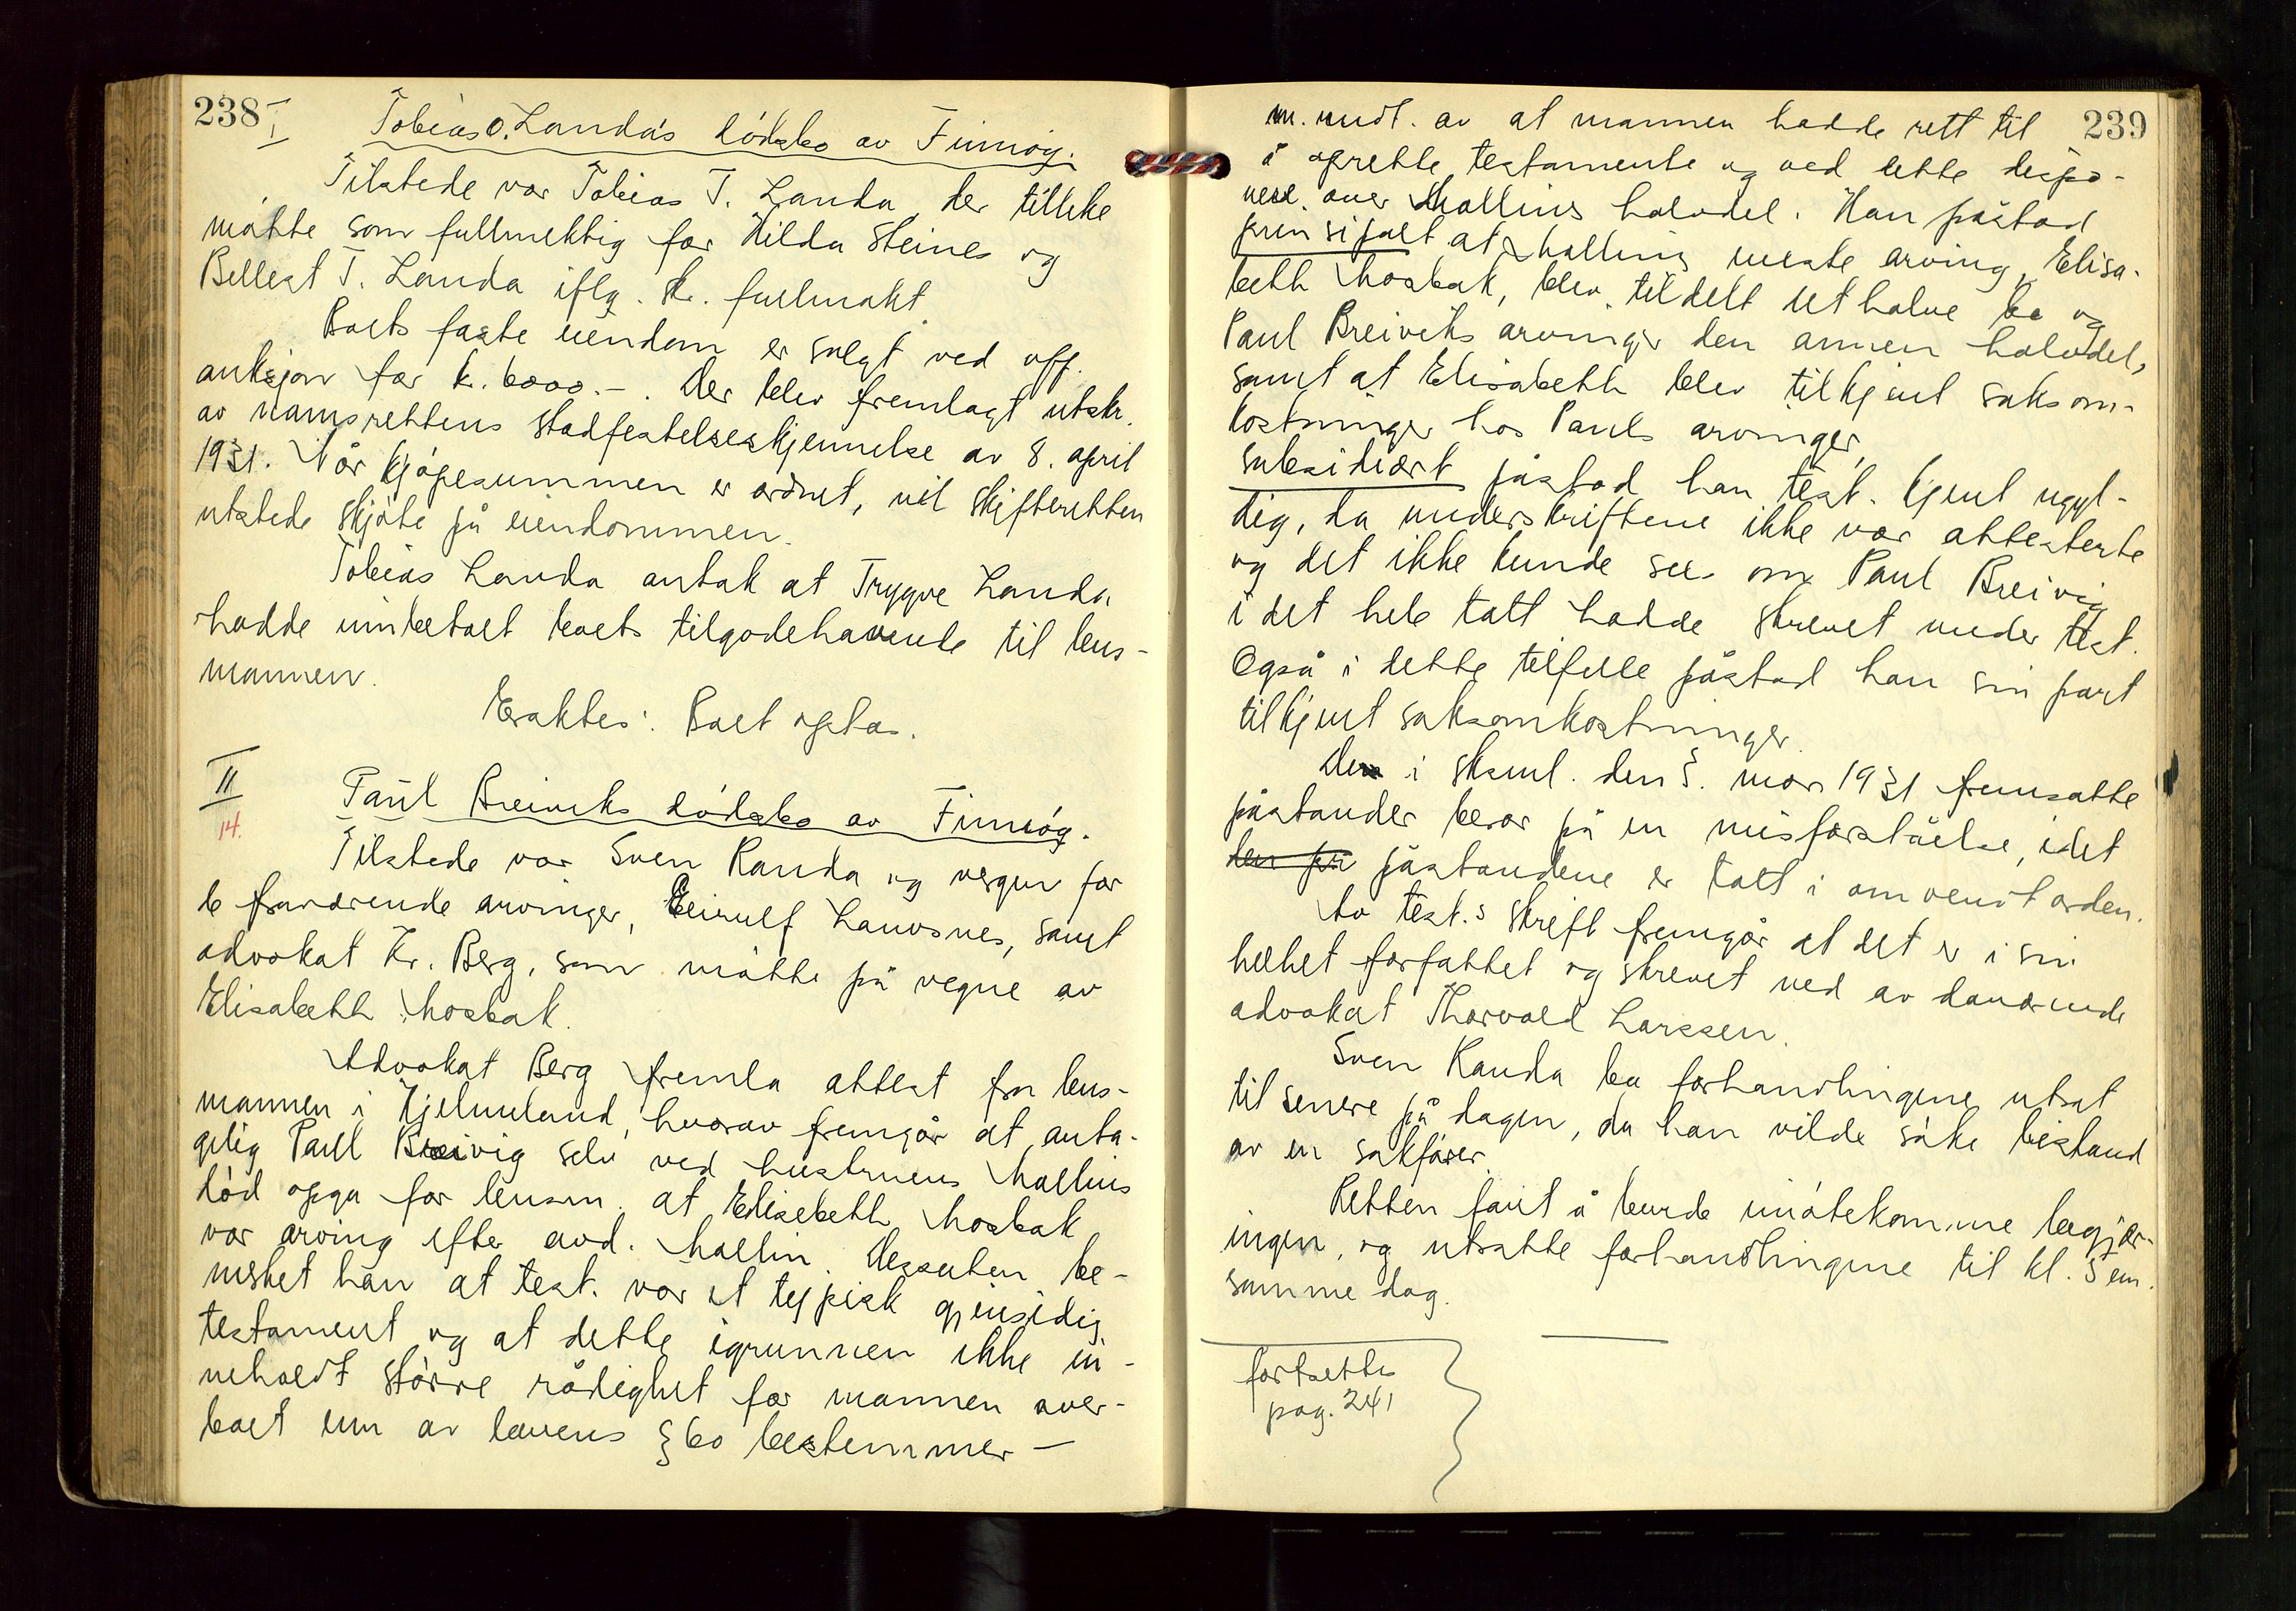 238
I
Tobias O. Landa's dødsbo av Finnøy.
Tilstede var Tobias T. Landa, der tillike
møtte som fullmektig for Hilda Steines og
Bellest T. Landa iflg. skr. fullmakt.
Boets faste eiendom er solgt ved off.
auksjon for k. 6000.-. Der blev fremlagt utskr.
av namsrettens stadfestelseskjennelse av 8. april
1931. Når kjøpesummen er ordnet, vil skifteretten
utstede skjøte på eiendommen.
Tobias Landa antok at Trygve Landa
hadde innbetalt boets tilgodehavende til lens-
mannen.
Eraktes: Boet optas.
II
14.
Paul Breiviks dødsbo av Finnøy.
Tilstede var Sven Randa og vergen for
de fraværende arvinger, Eiulf Lauvsnes, samt
advokat Kr. Berg, som møtte på vegne av
Elisabeth Mosbak.
Advokat Berg fremla attest fra lens-
mannen i Hjelmeland, hvorav fremgår at anta-
gelig Paul Breivig selv ved hustruens Mallins
død opga for lensm. at Elisebeth Mosbak
var arving efter avd. Mallin. Dessuten be-
merket han at test. var et typisk gjensidig
testament og at dette igrunnen ikke in-
neholdt større rådighet for mannen over-
boet enn arvelovens § 60 bestemmer —
239
m. undt. av at mannen hadde rett til
å oprette testamente og ved dette dispo-
nere over Mallins halvdel. Han påstod
prinsipalt at Mallins neste arving, Elisa-
beth Mosbak, blev tildelt det halve bo og
Paul Breiviks arvinger den annen halvdel,
samt at Elisabeth blev tilkjent saksom-
kostninger hos Pauls arvinger.
Subsidiært påstod han test. kjent ugyl-
dig, da underskriftene ikke var attesterte
og det ikke kunde sees om Paul Breivig
i det hele tatt hadde skrevet under test.
Også i dette tilfelle påstod han sin part
tilkjent saksomkostninger.
De i skml. den 5. mar 1931 fremsatte
påstander beror på en misforståelse, idet
den på påstandene er tatt i omvendt orden.
Av test.s skrift fremgår at det er i sin
helhet forfattet og skrevet ved av daværende
advokat Thorvald Larssen.
Sven Randa ba forhandlingene utsat
til senere på dagen, da han vilde søke bistand
av en sakfører.
Retten fant å burde imøtekomme begjær-
ingen, og utsatte forhandlingene til kl. 5 em.
samme dag.
fortsettes
pag. 241